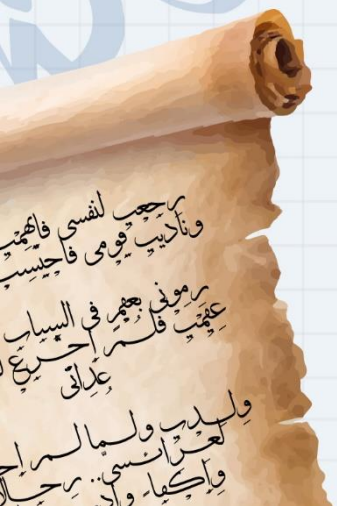 رجعت لنفسي فاتهمت
وناديت قومي فاحتسبت
رموني بعقم في الشباب
عقمت فلم أجزع
عداتي
ولدت ولما لم أجد
لعرائسي.. رجالا
وأكفاء وأدت